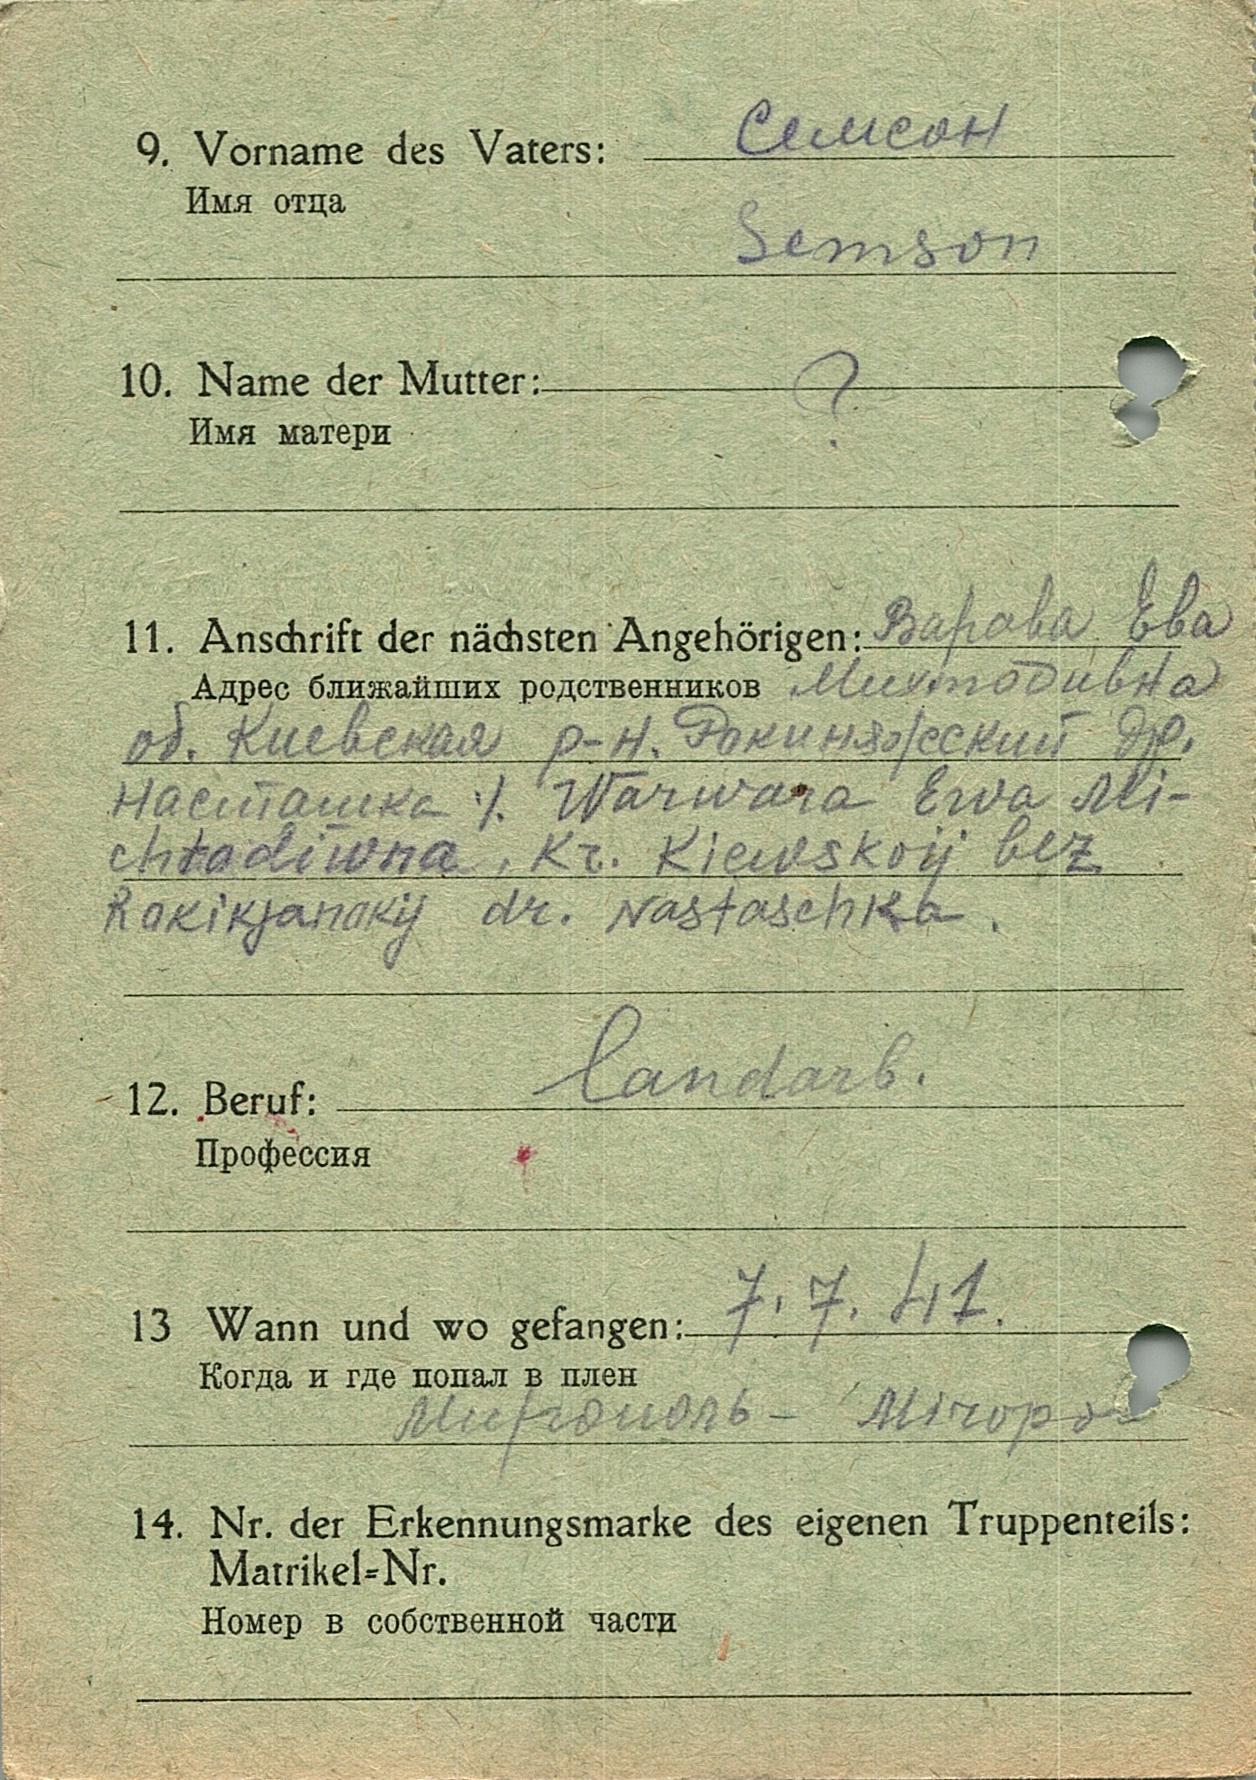 9. Vorname des Vaters: Семсон
Имя отца
Semson
10. Name der Mutter: ?
Имя матери
11. Anschrift der nächsten Angehörigen: Ева
Адрес ближайших родственников
об. Киевская р-н. др.
Насташка ·/. Warwara Ewa Mi-
chtadiwna, Kr. Kiewskoij bez
dr. Nastaschka.
12. Beruf: Landarb.
Профессия
13 Wann und wo gefangen: 7. 7. 41.
Когда и где попал в плен
14. Nr. der Erkennungsmarke des eigenen Truppenteils:
Matrikel=Nr.
Номер в собственной части